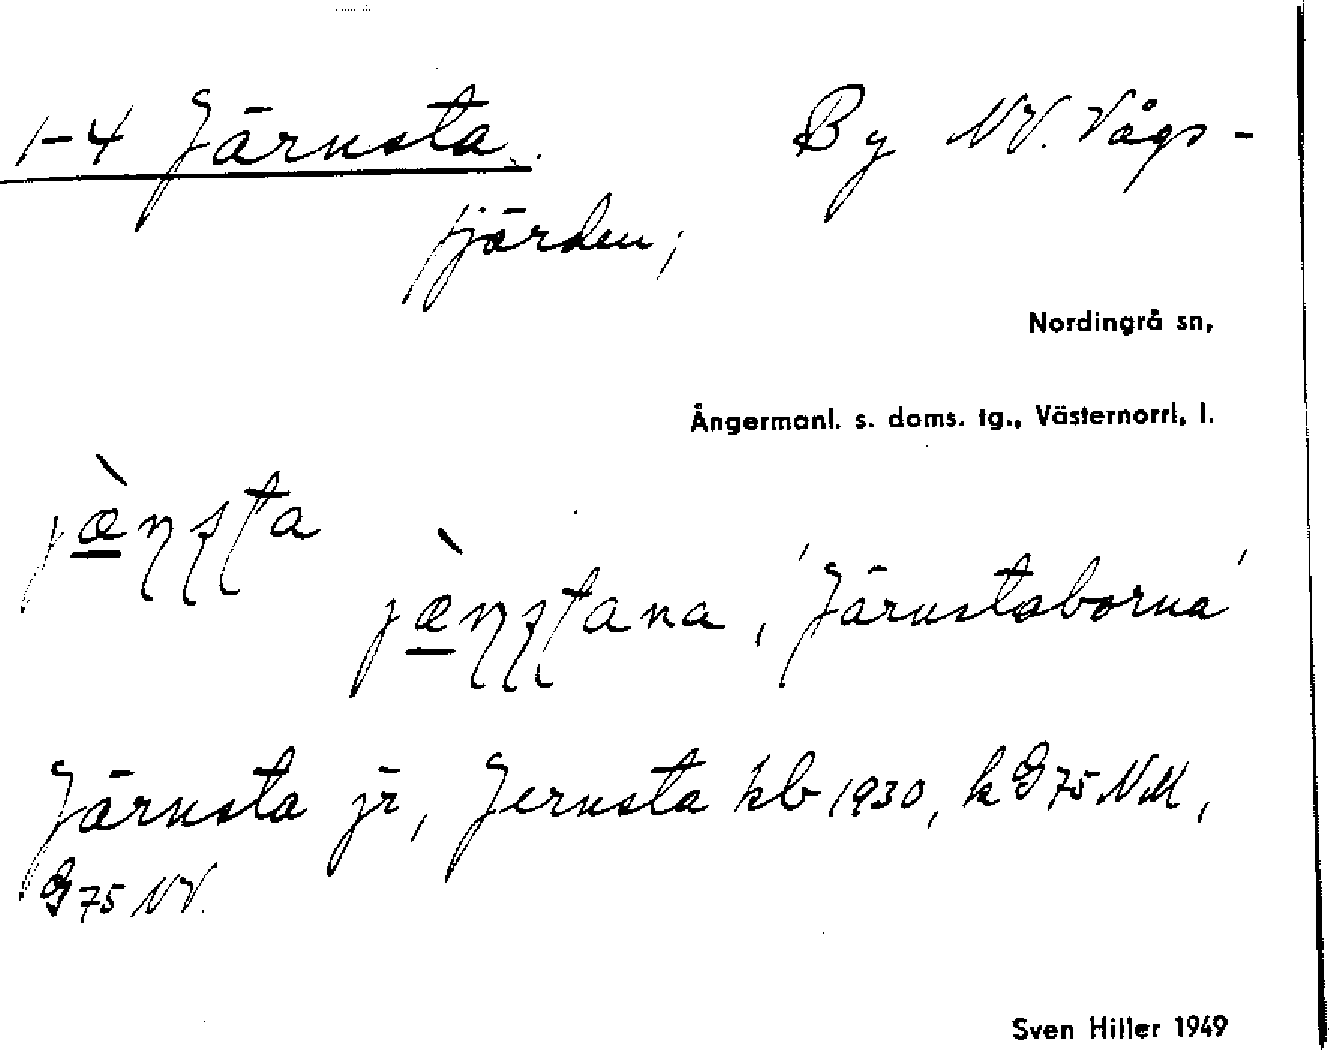 1-4 Järnsta. By NV. Vågs-
fjärden;
Nordingrå sn,
Ångermanl. s. doms. tg., Västernorrl. l.
jæ̀ɳʂʈa
jæ̀ɳʂʈana, 'Järnstaborna'
Järnsta jr, Jernsta kb 1930, k G 75 NM,
G 75 NV.
Sven Hiller 1949